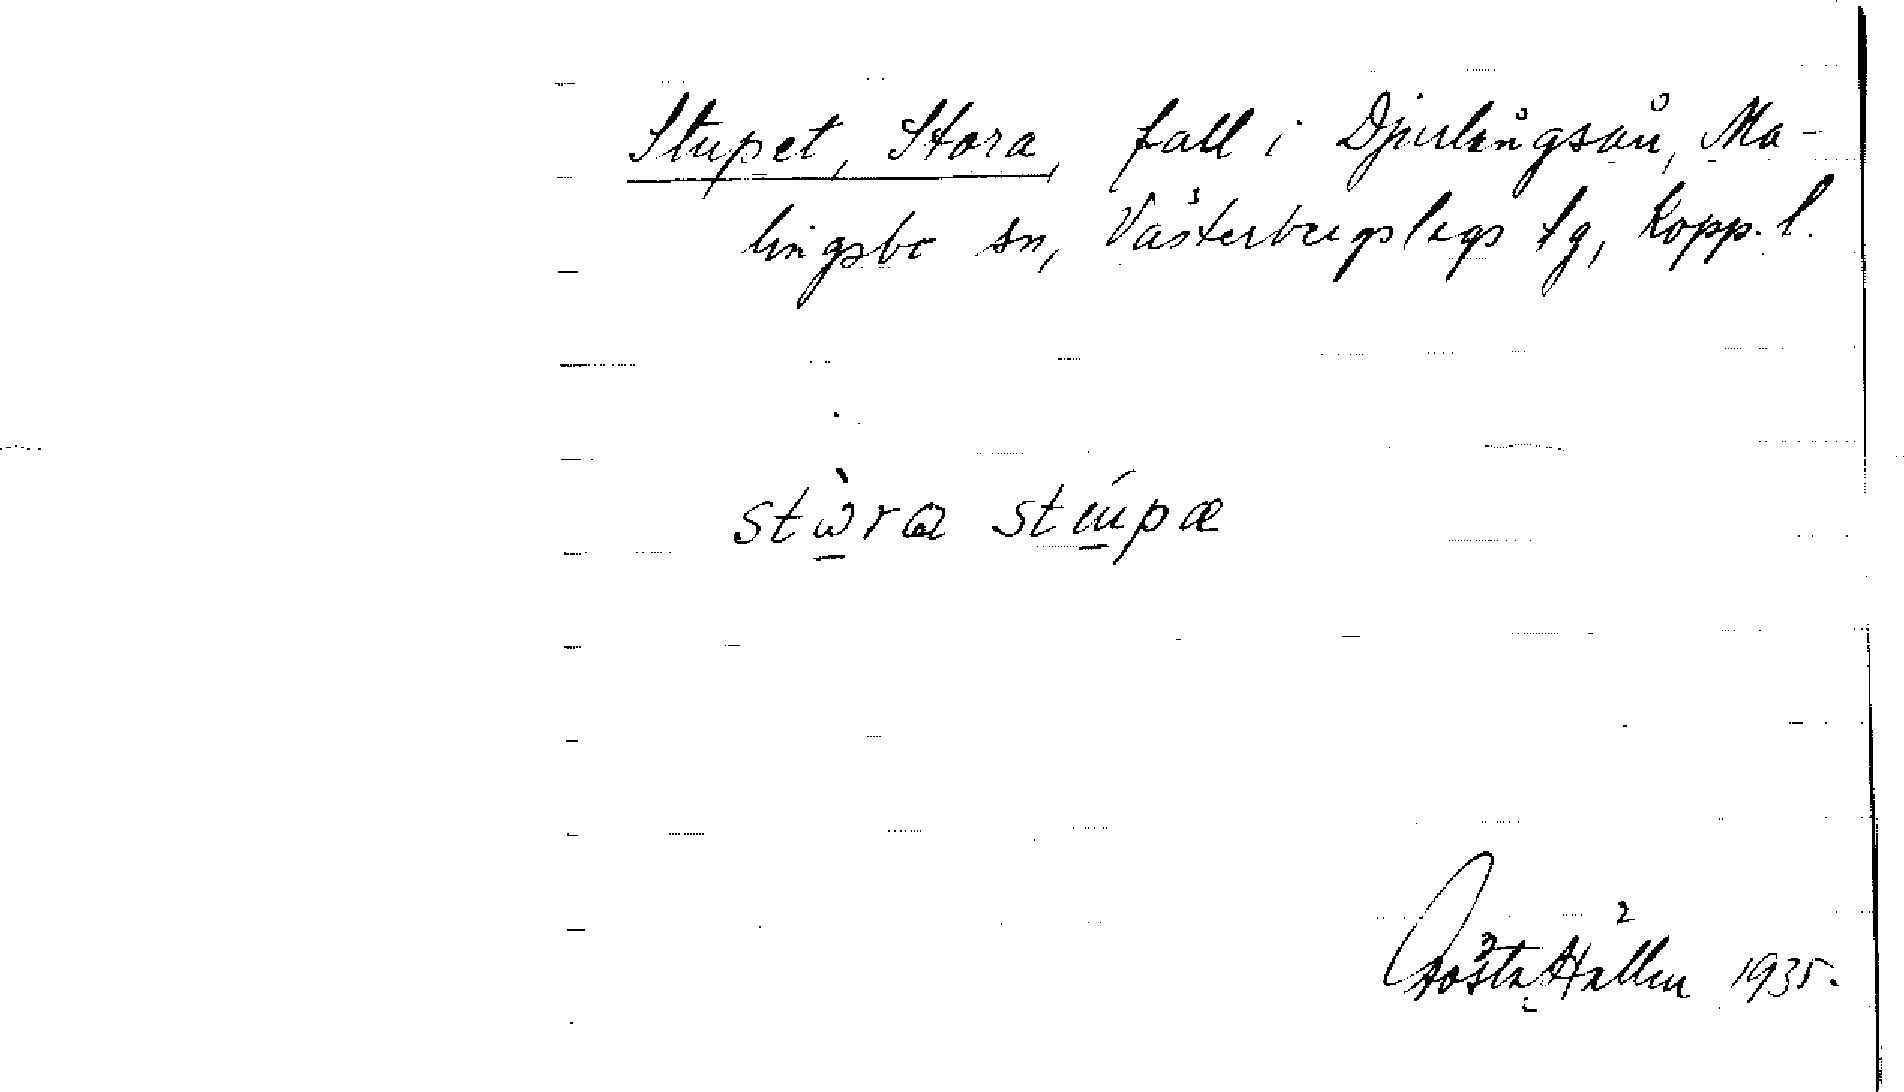 Stupet, Stora, fall i Djurlångsån, Ma-
lingsbo sn, Västerbergslags tg, Kopp. l.
stὼra stúpæ
Gösta Hällen 1935.